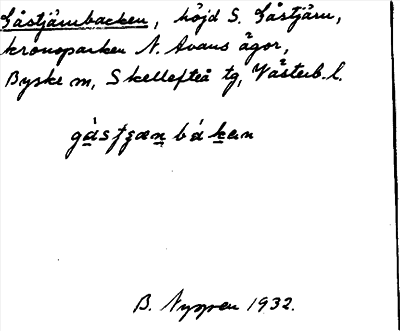 Gåstjärnbacken, höjd S. Gåstjärn,
kronoparken N. Avans ägor,
Byske sn, Skellefteå tg, Västerb. l.
gåstjæn bákan
B. Nygren 1932.